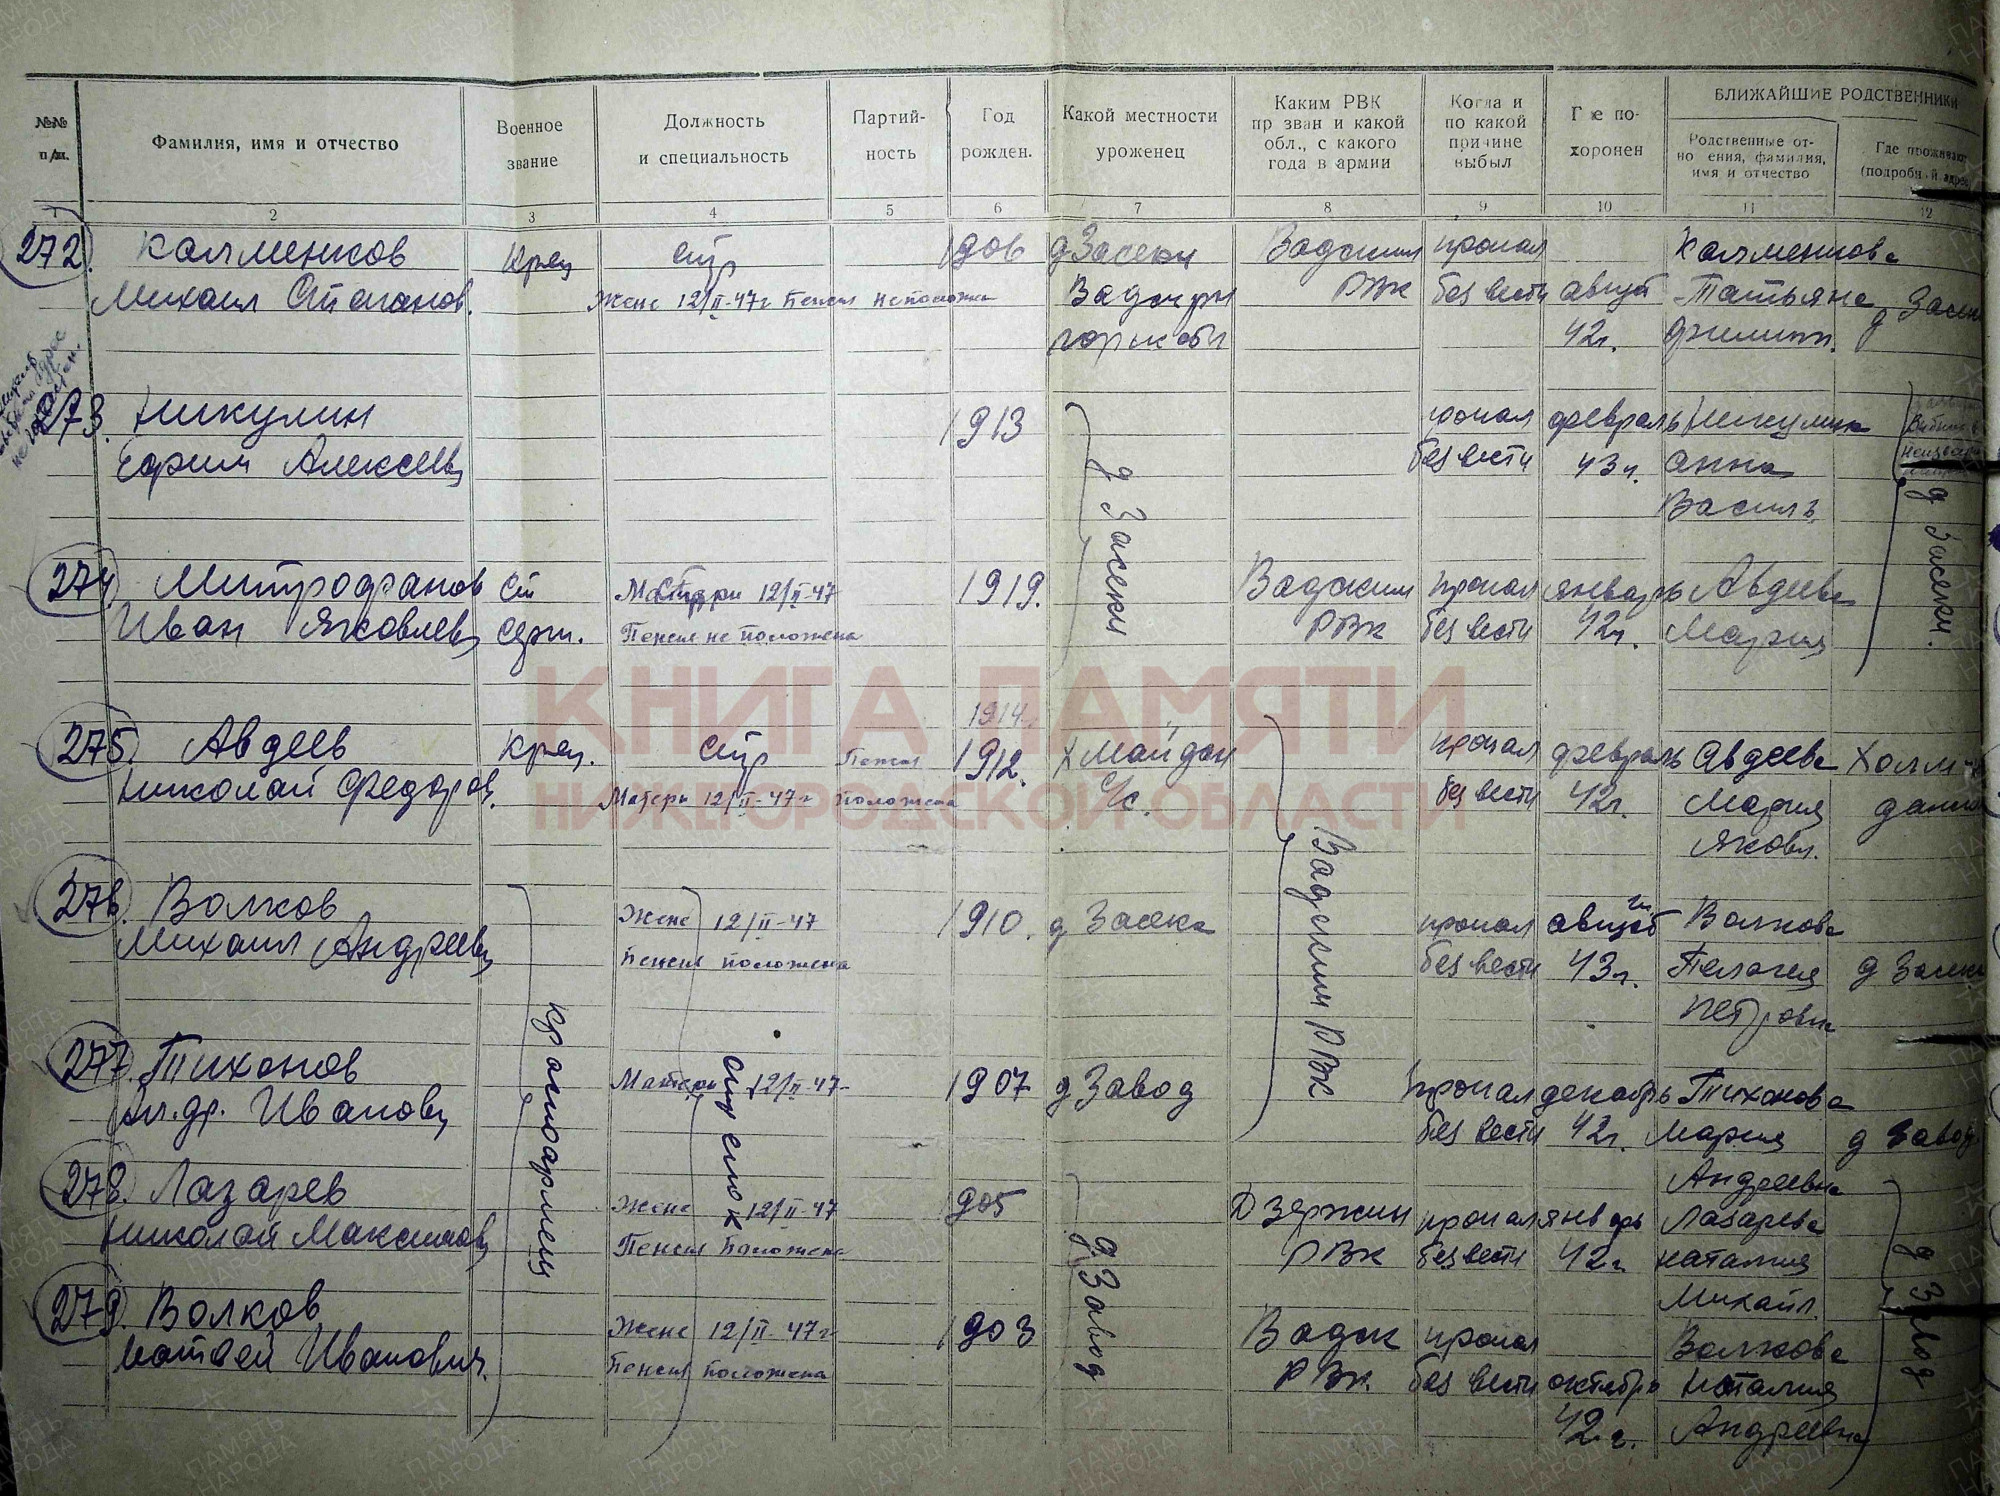 №№ п/п.
Фамилия, имя и отчество
Военное звание
Должность и специальность
Партий- ность
Год рожден.
Какой местности уроженец
Каким РВК пр зван и какой обл., с какого года в армии
Когда и по какой причине выбыл
Где по- хоронен
БЛИЖАЙШИЕ РОДСТВЕННИКИ
Родственные от- но ения, фамилия, имя и отчество
Где прожива
(подробн й адрес
2 3 4 5 6 7 8 9 10 11 12
272. Калменков Кр-ец стр 1906 д Засеки Вадским пропал Калменкова
Михаил Степанов. Жене 12/II-47г Пенсия не положена Вадский РВК без вести август Татьяна д Засек
42г.
273. Никулин 1913 пропал февраль Никулина
Ефим Алексеев без вести 43г. Анна
Василь.
д Засеки
д Засеки.
274. Митрофанов Ст Матери 12/II-47 1919. Вадским пропал январь Авдеева
Иван Яковлев серж. Пенсия не положена РВК без вести 42г. Мария
КНИГА ПАМЯТИ
НИЖЕГОРОДСКОЙ ОБЛАСТИ
1914
275. Авдеев Кр-ец. стр Пенсия 1912. Х Майдан пропал февраль Авдеева
Николай Федоров. Матери 12/II-47г положена с/с. без вести 42г. Мария
Яковл.
276. Волков Жене 12/II-47 1910. д Засека пропал август Волкова
Михаил Андреев Пенсия положена без вести 43г. Пелагея д Засек
Петровна
красноармеец
стрелок
Вадским РВК
277. Тихонов Матери 12/II-47- 1907 д Завод пропал декабрь Тихонова
Ал.др. Иванов без вести 42г. Мария д Завод
Андреевна
278. Лазарев Жене 12/II-47 1905 Дзержин пропал январь Лазарева
Николай Максимов Пенсия положена РВК без вести 42г Наталия
Михайл.
д Завод
д Завод
279. Волков Жене 12/II-47г 1903 Вадск пропал Волкова
Матвей Иванович. Пенсия положена РВК. без вести октябрь Наталия
42г. Андреевна